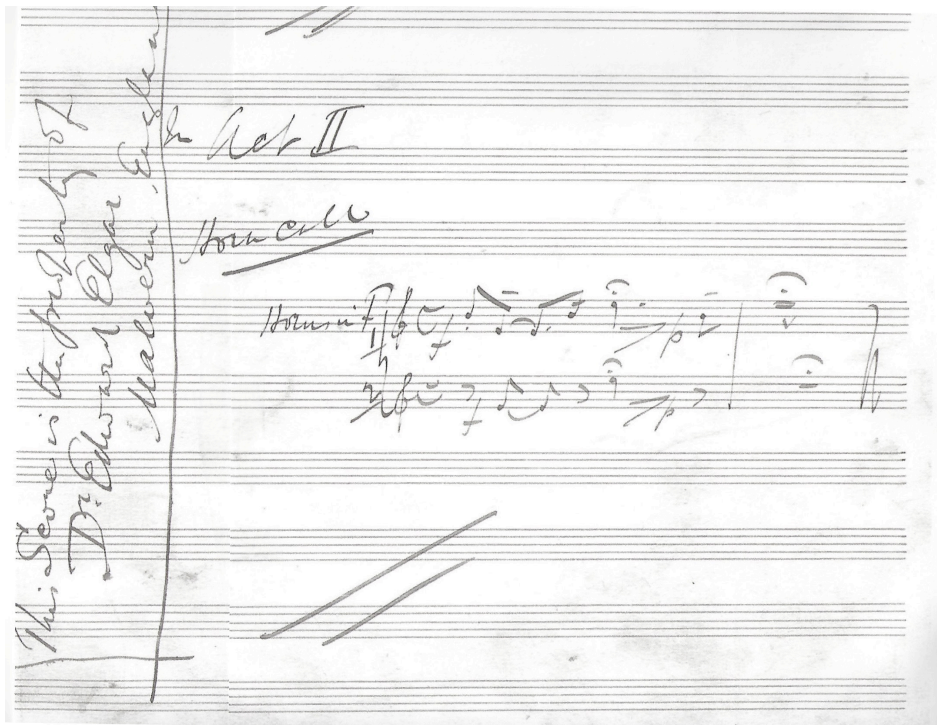 This Score is the property of
Dr. Edward Elgar
Malvern, England
In Act II
Horn Call
Horns in F
f
p
f
p